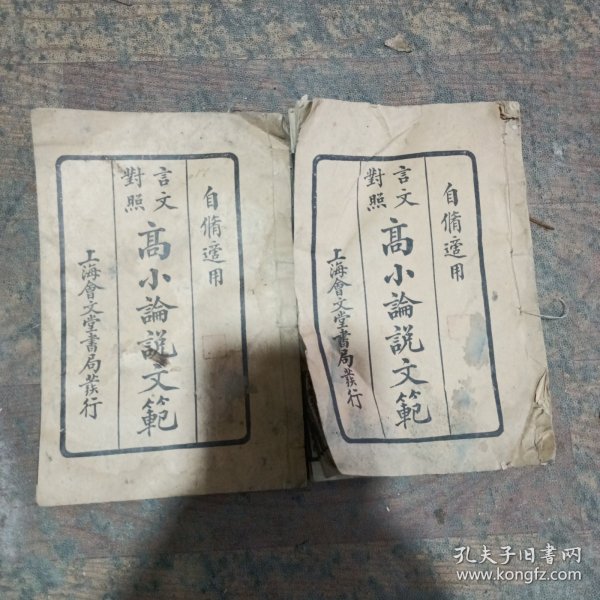 自脩適用
言文對照
高小論說文範
上海會文堂書局發行
自脩適用
言文對照
高小論說文範
上海會文堂書局發行
孔夫子旧书网
www.kongfz.com